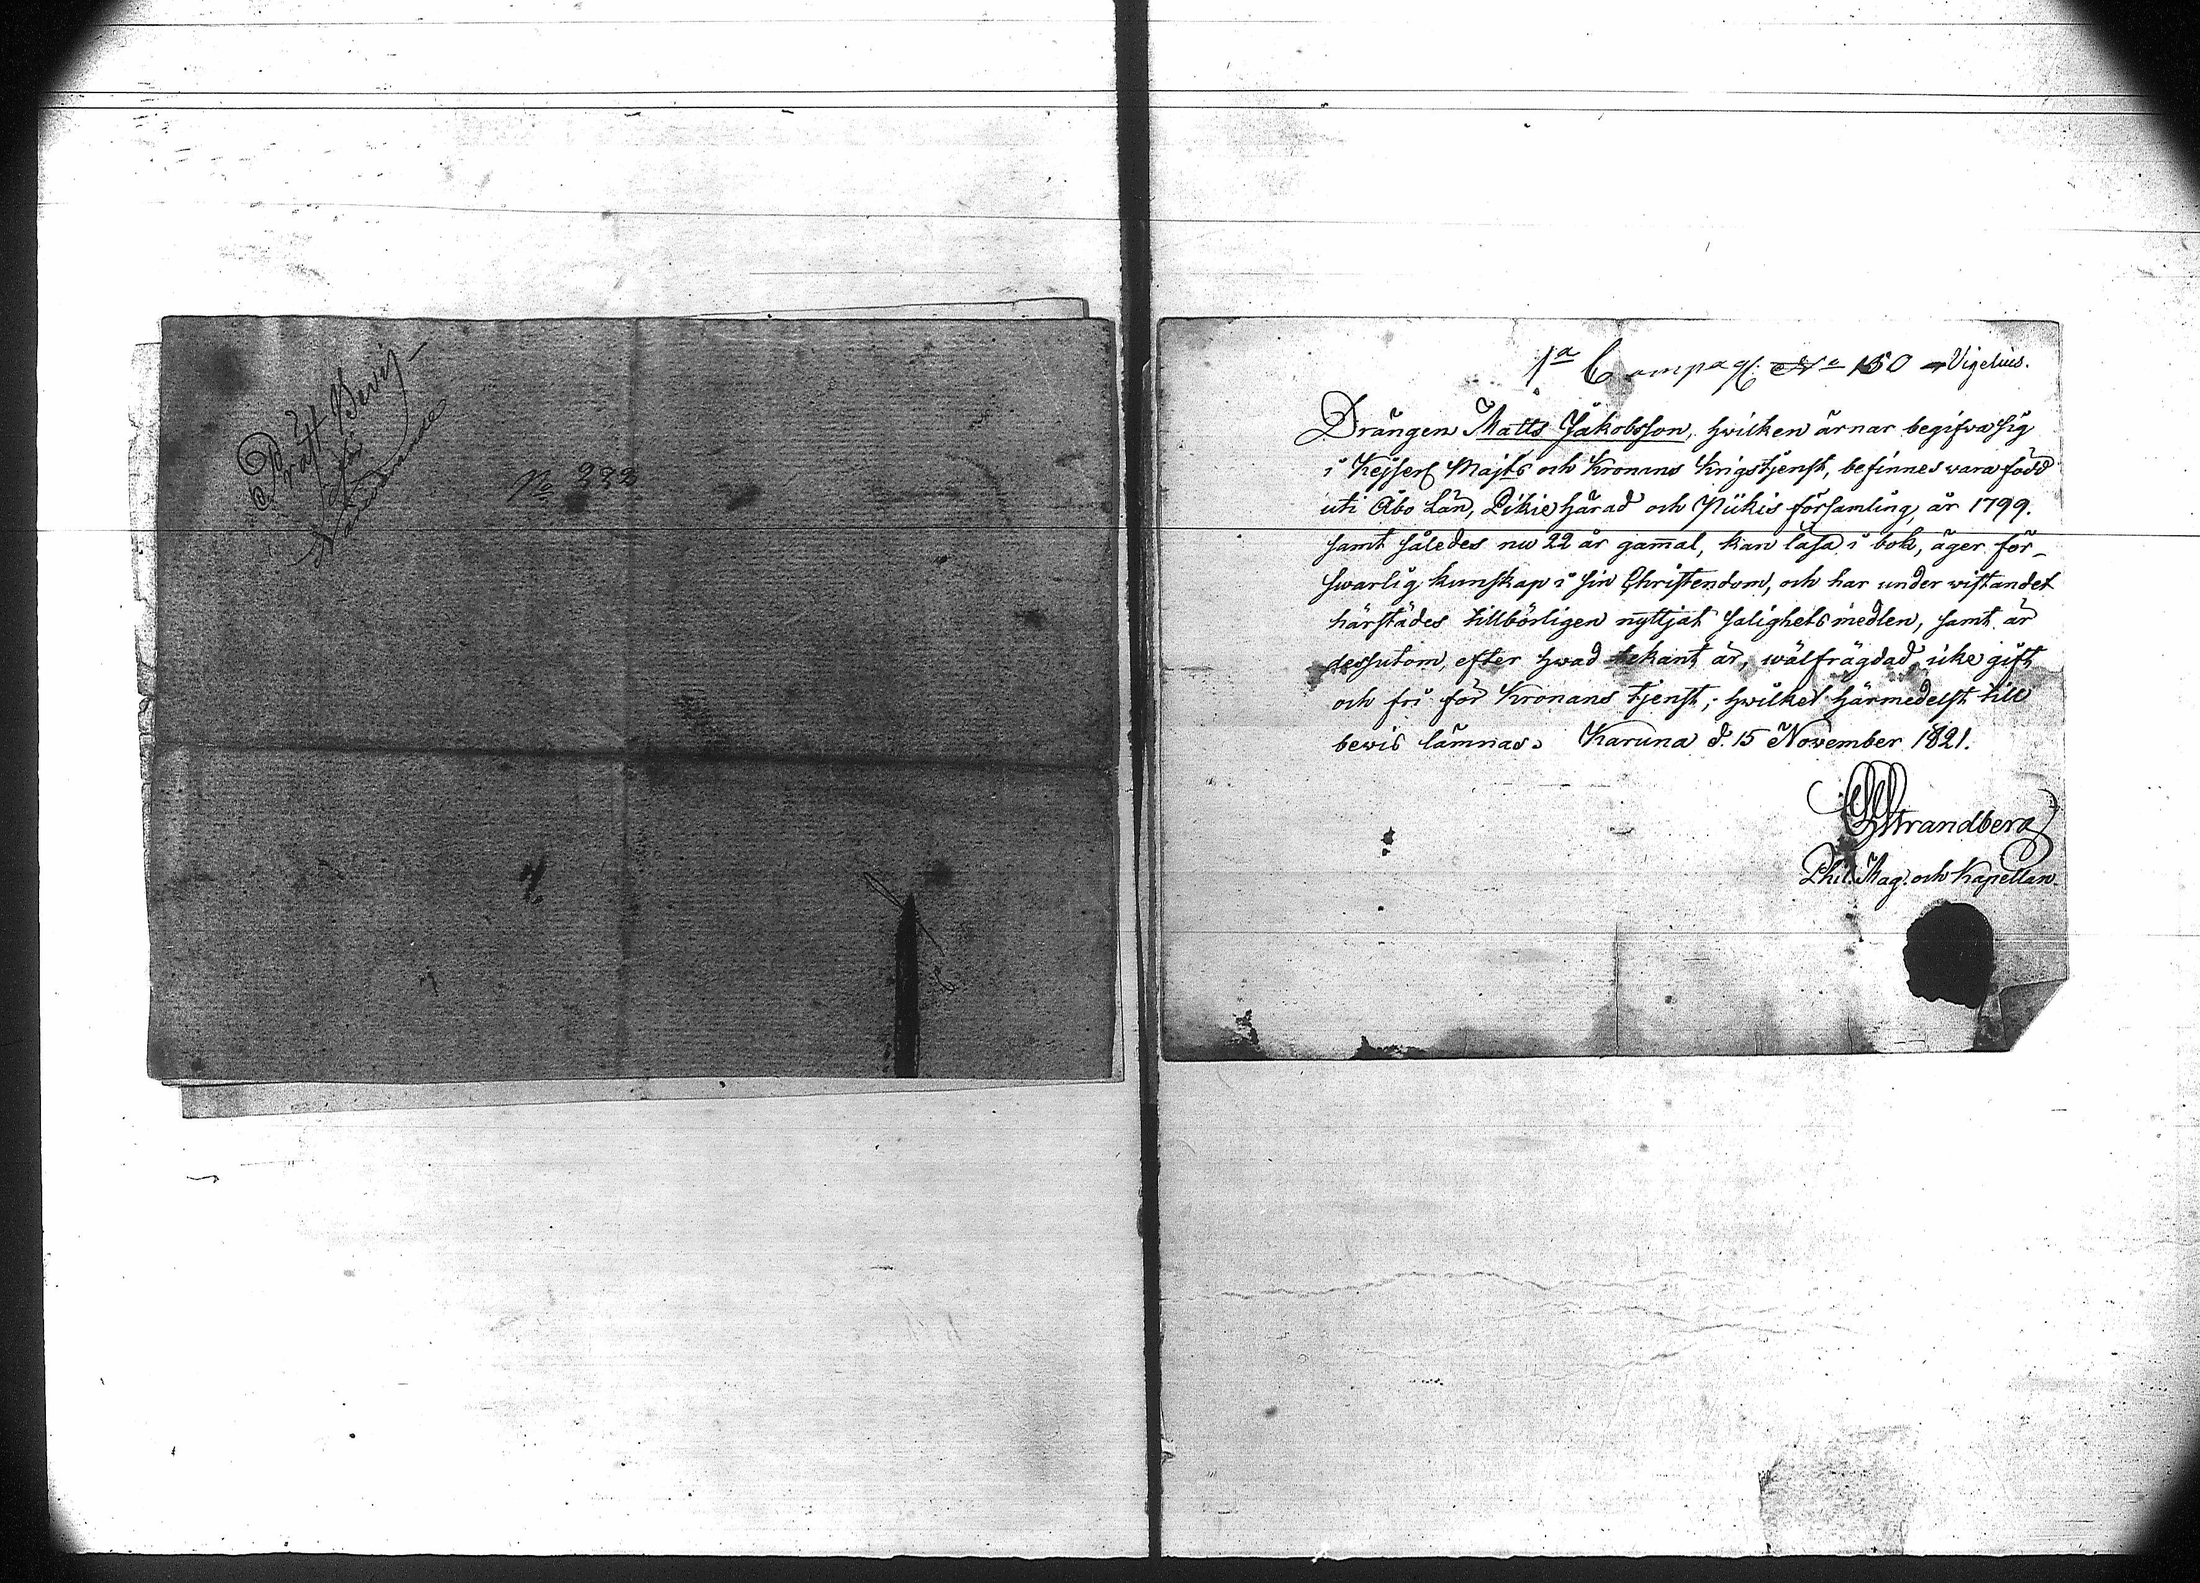 Präst Bevis
för
N:o 332
1:a Compag: N:o 150 Vigelius.
Drängen Matts Jakobsson, hwilken ärnar begifwa sig
i Kejserl Majts och Kronans Krigstjenst, befinnes wara född
uti Åbo Län, Pikie härad och Piikis församling, år 1799.
samt således nu 22 år gam̄al, kan läsa i bok, äger för-
swarlig kunskap i sin Christendom, och har under wistandet
härstädes tillbörligen nyttjat salighetsmedlen, samt är
dessutom, efter hwad bekant är, wälfrägdad, icke gift
och fri för Kronans tjenst; hwilket härmedelst till
bewis lämnas. Karuna d. 15 November 1821.
Strandberg
Phil. Mag. och Kapellan.